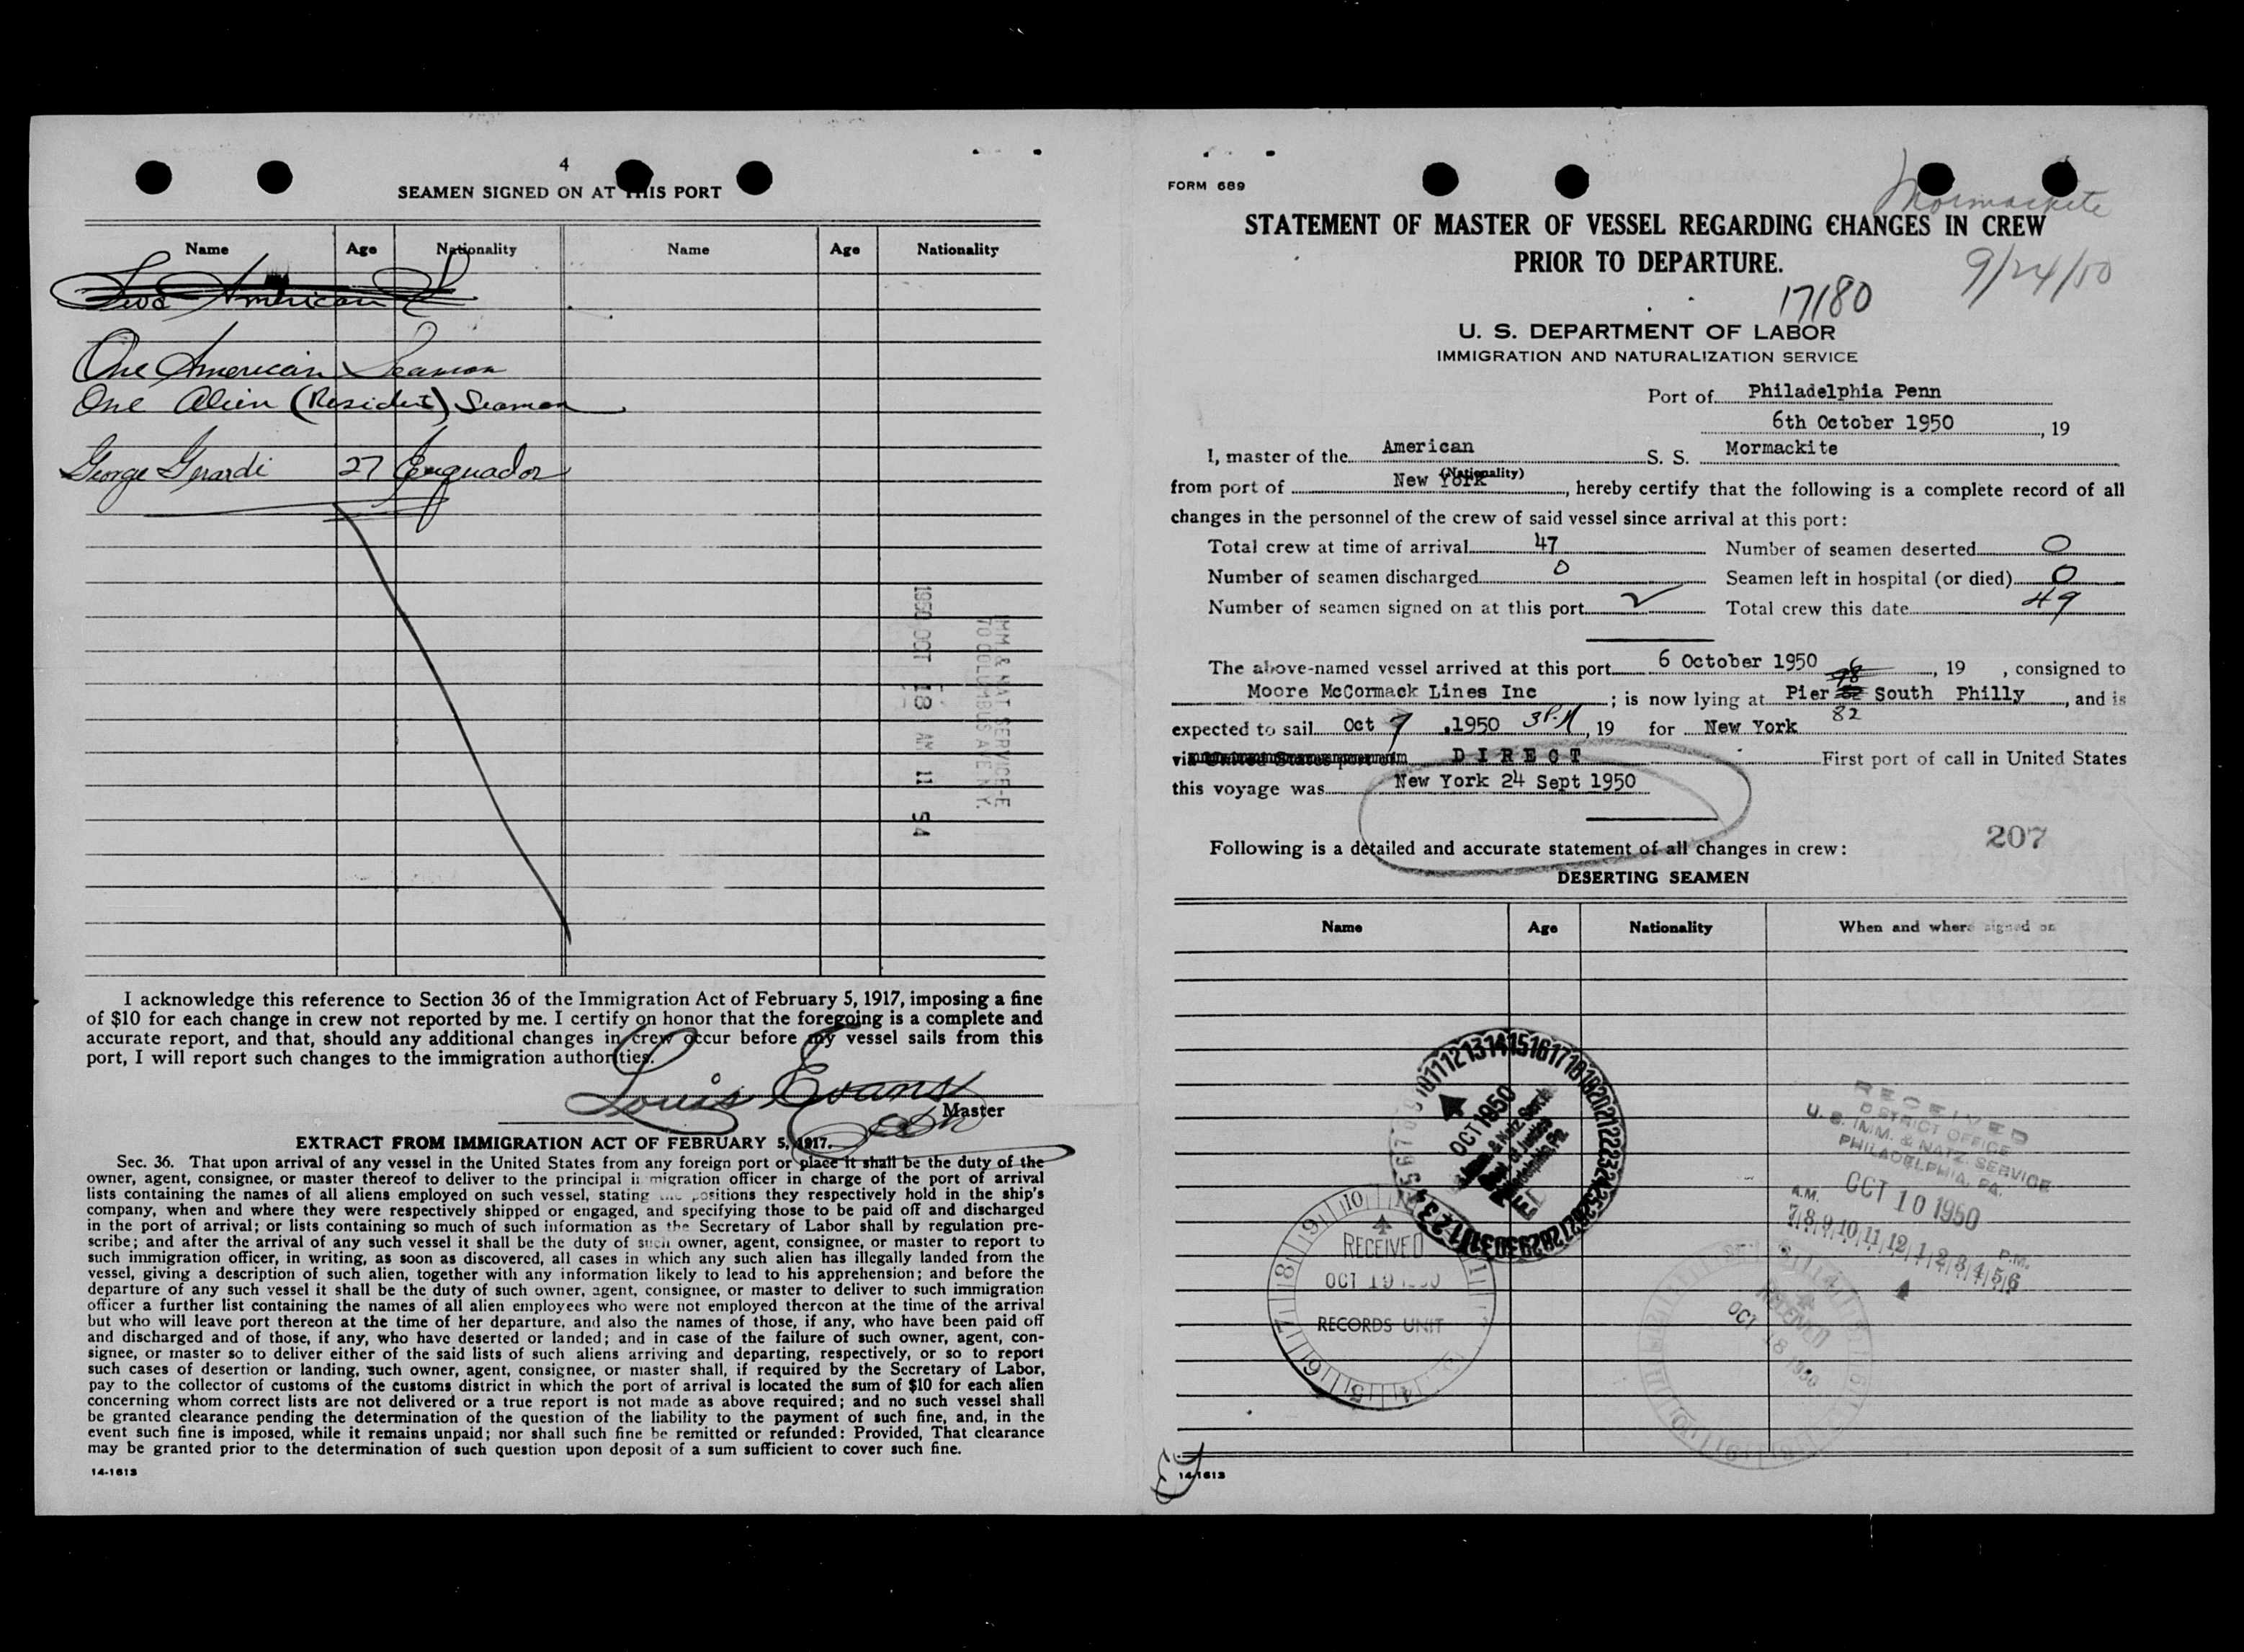 4
SEAMEN SIGNED ON AT THIS PORT
Name Age Nationality Name Age Nationality
Two American
One American Seaman
One Alien (Resident) Seaman
George Gerardi 27 Equador
1950 OCT 18 AM 11 54
IMM & NAT SERVICE-E
70 COLUMBUS AVE N.Y.
I acknowledge this reference to Section 36 of the Immigration Act of February 5, 1917, imposing a fine
of $10 for each change in crew not reported by me. I certify on honor that the foregoing is a complete and
accurate report, and that, should any additional changes in crew occur before my vessel sails from this
port, I will report such changes to the immigration authorities.
Louis Evans
Master
EXTRACT FROM IMMIGRATION ACT OF FEBRUARY 5, 1917.
Sec. 36. That upon arrival of any vessel in the United States from any foreign port or place it shall be the duty of the
owner, agent, consignee, or master thereof to deliver to the principal immigration officer in charge of the port of arrival
lists containing the names of all aliens employed on such vessel, stating the positions they respectively hold in the ship's
company, when and where they were respectively shipped or engaged, and specifying those to be paid off and discharged
in the port of arrival; or lists containing so much of such information as the Secretary of Labor shall by regulation pre-
scribe; and after the arrival of any such vessel it shall be the duty of such owner, agent, consignee, or master to report to
such immigration officer, in writing, as soon as discovered, all cases in which any such alien has illegally landed from the
vessel, giving a description of such alien, together with any information likely to lead to his apprehension; and before the
departure of any such vessel it shall be the duty of such owner, agent, consignee, or master to deliver to such immigration
officer a further list containing the names of all alien employees who were not employed thereon at the time of the arrival
but who will leave port thereon at the time of her departure, and also the names of those, if any, who have been paid off
and discharged and of those, if any, who have deserted or landed; and in case of the failure of such owner, agent, con-
signee, or master so to deliver either of the said lists of such aliens arriving and departing, respectively, or so to report
such cases of desertion or landing, such owner, agent, consignee, or master shall, if required by the Secretary of Labor,
pay to the collector of customs of the customs district in which the port of arrival is located the sum of $10 for each alien
concerning whom correct lists are not delivered or a true report is not made as above required; and no such vessel shall
be granted clearance pending the determination of the question of the liability to the payment of such fine, and, in the
event such fine is imposed, while it remains unpaid; nor shall such fine be remitted or refunded: Provided, That clearance
may be granted prior to the determination of such question upon deposit of a sum sufficient to cover such fine.
14-1613
FORM 689
Mormackite
STATEMENT OF MASTER OF VESSEL REGARDING CHANGES IN CREW
PRIOR TO DEPARTURE.
9/24/50
17180
U. S. DEPARTMENT OF LABOR
IMMIGRATION AND NATURALIZATION SERVICE
Port of Philadelphia Penn
6th October 1950, 19
I, master of the American S. S. Mormackite
(Nationality)
from port of New York, hereby certify that the following is a complete record of all
changes in the personnel of the crew of said vessel since arrival at this port:
Total crew at time of arrival 47 Number of seamen deserted 0
Number of seamen discharged 0 Seamen left in hospital (or died) 0
Number of seamen signed on at this port 2 Total crew this date 49
The above-named vessel arrived at this port 6 October 1950, 19 , consigned to
Moore McCormack Lines Inc ; is now lying at Pier 82 South Philly, and is
expected to sail Oct 9 ,1950 3 P.M, 19 for New York
via DIRECT First port of call in United States
this voyage was New York 24 Sept 1950
207
Following is a detailed and accurate statement of all changes in crew:
DESERTING SEAMEN
Name Age Nationality When and where signed on
OCT 1950
RECEIVED
OCT 19 1950
RECORDS UNIT
RECEIVED
DISTRICT OFFICE
U. S. IMM. & NATZ. SERVICE
PHILADELPHIA, PA.
OCT 10 1950
A.M. P.M.
7 8 9 10 11 12 1 2 3 4 5 6
RECEIVED
OCT 18 1950
14-1613